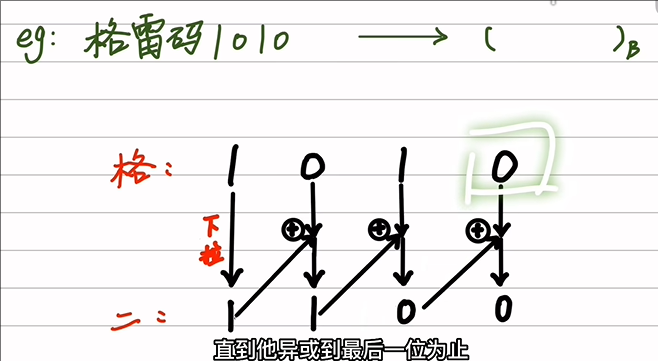 eg: 格雷码1010 → ( )B
格: 1 0 1 0
下拉
⊕ ⊕ ⊕
二: 1 1 0 0
直到他异或到最后一位为止